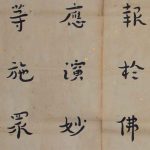 報於佛
應演妙
等施眾